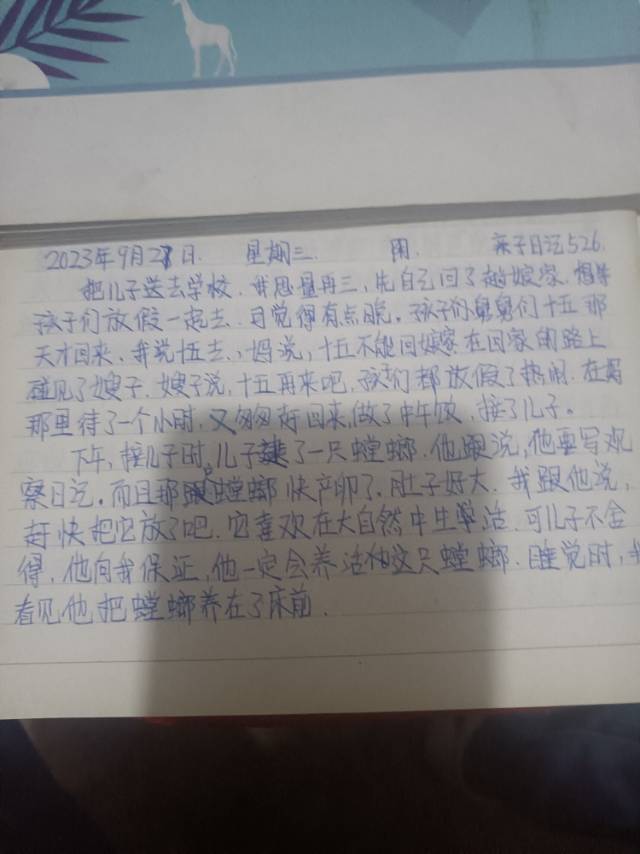 2023年9月27日. 星期三. 雨. 亲子日记526.
把儿子送去学校.我思量再三,先自己回了趟娘家.想等
孩子们放假一起去.可觉得有点晚.孩子们舅舅们十五那
天才回来.我说十五去,妈说,十五不能回娘家.在回家的路上
碰见了嫂子.嫂子说,十五再来吧,孩子们都放假了热闹.在妈
那里待了一个小时,又匆匆赶回来,做了中午饭,接了儿子。
下午,接儿子时,儿子逮了一只螳螂.他跟说,他要写观
察日记.而且那螳螂快产卵了.肚子好大.我跟他说,
赶快把它放了吧.它喜欢在大自然中生活.可儿子不舍
得,他向我保证,他一定会养活这只螳螂.睡觉时,我
看见他把螳螂养在了床前.